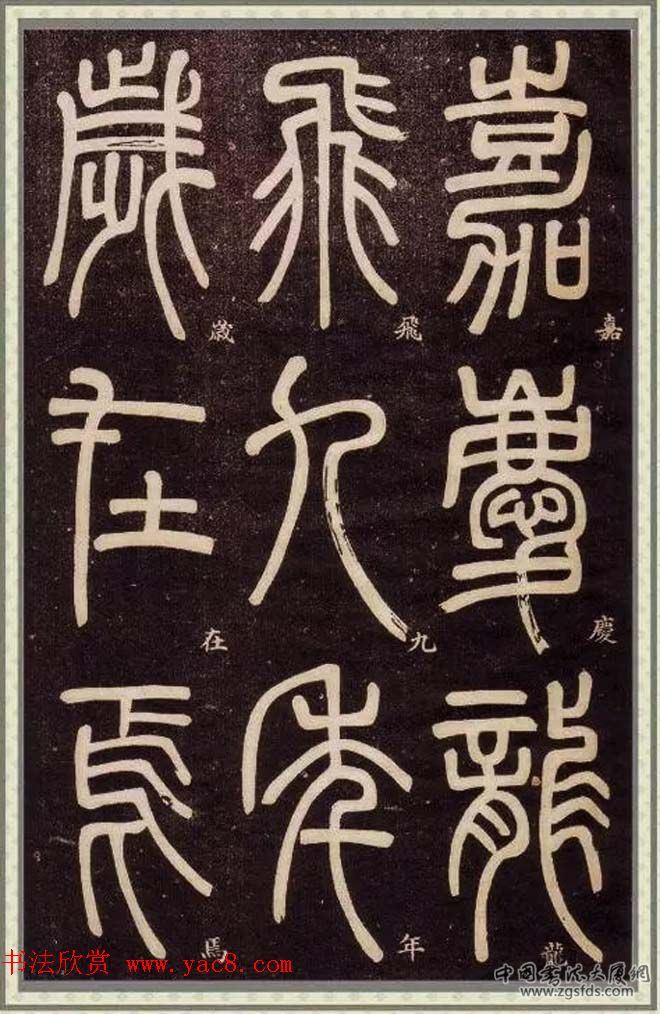 嘉慶龍
嘉慶龍
飛九年
飛九年
歲在焉
歲在焉
书法欣赏 www.yac8.com
中国书法大厦网
www.zgsfds.com